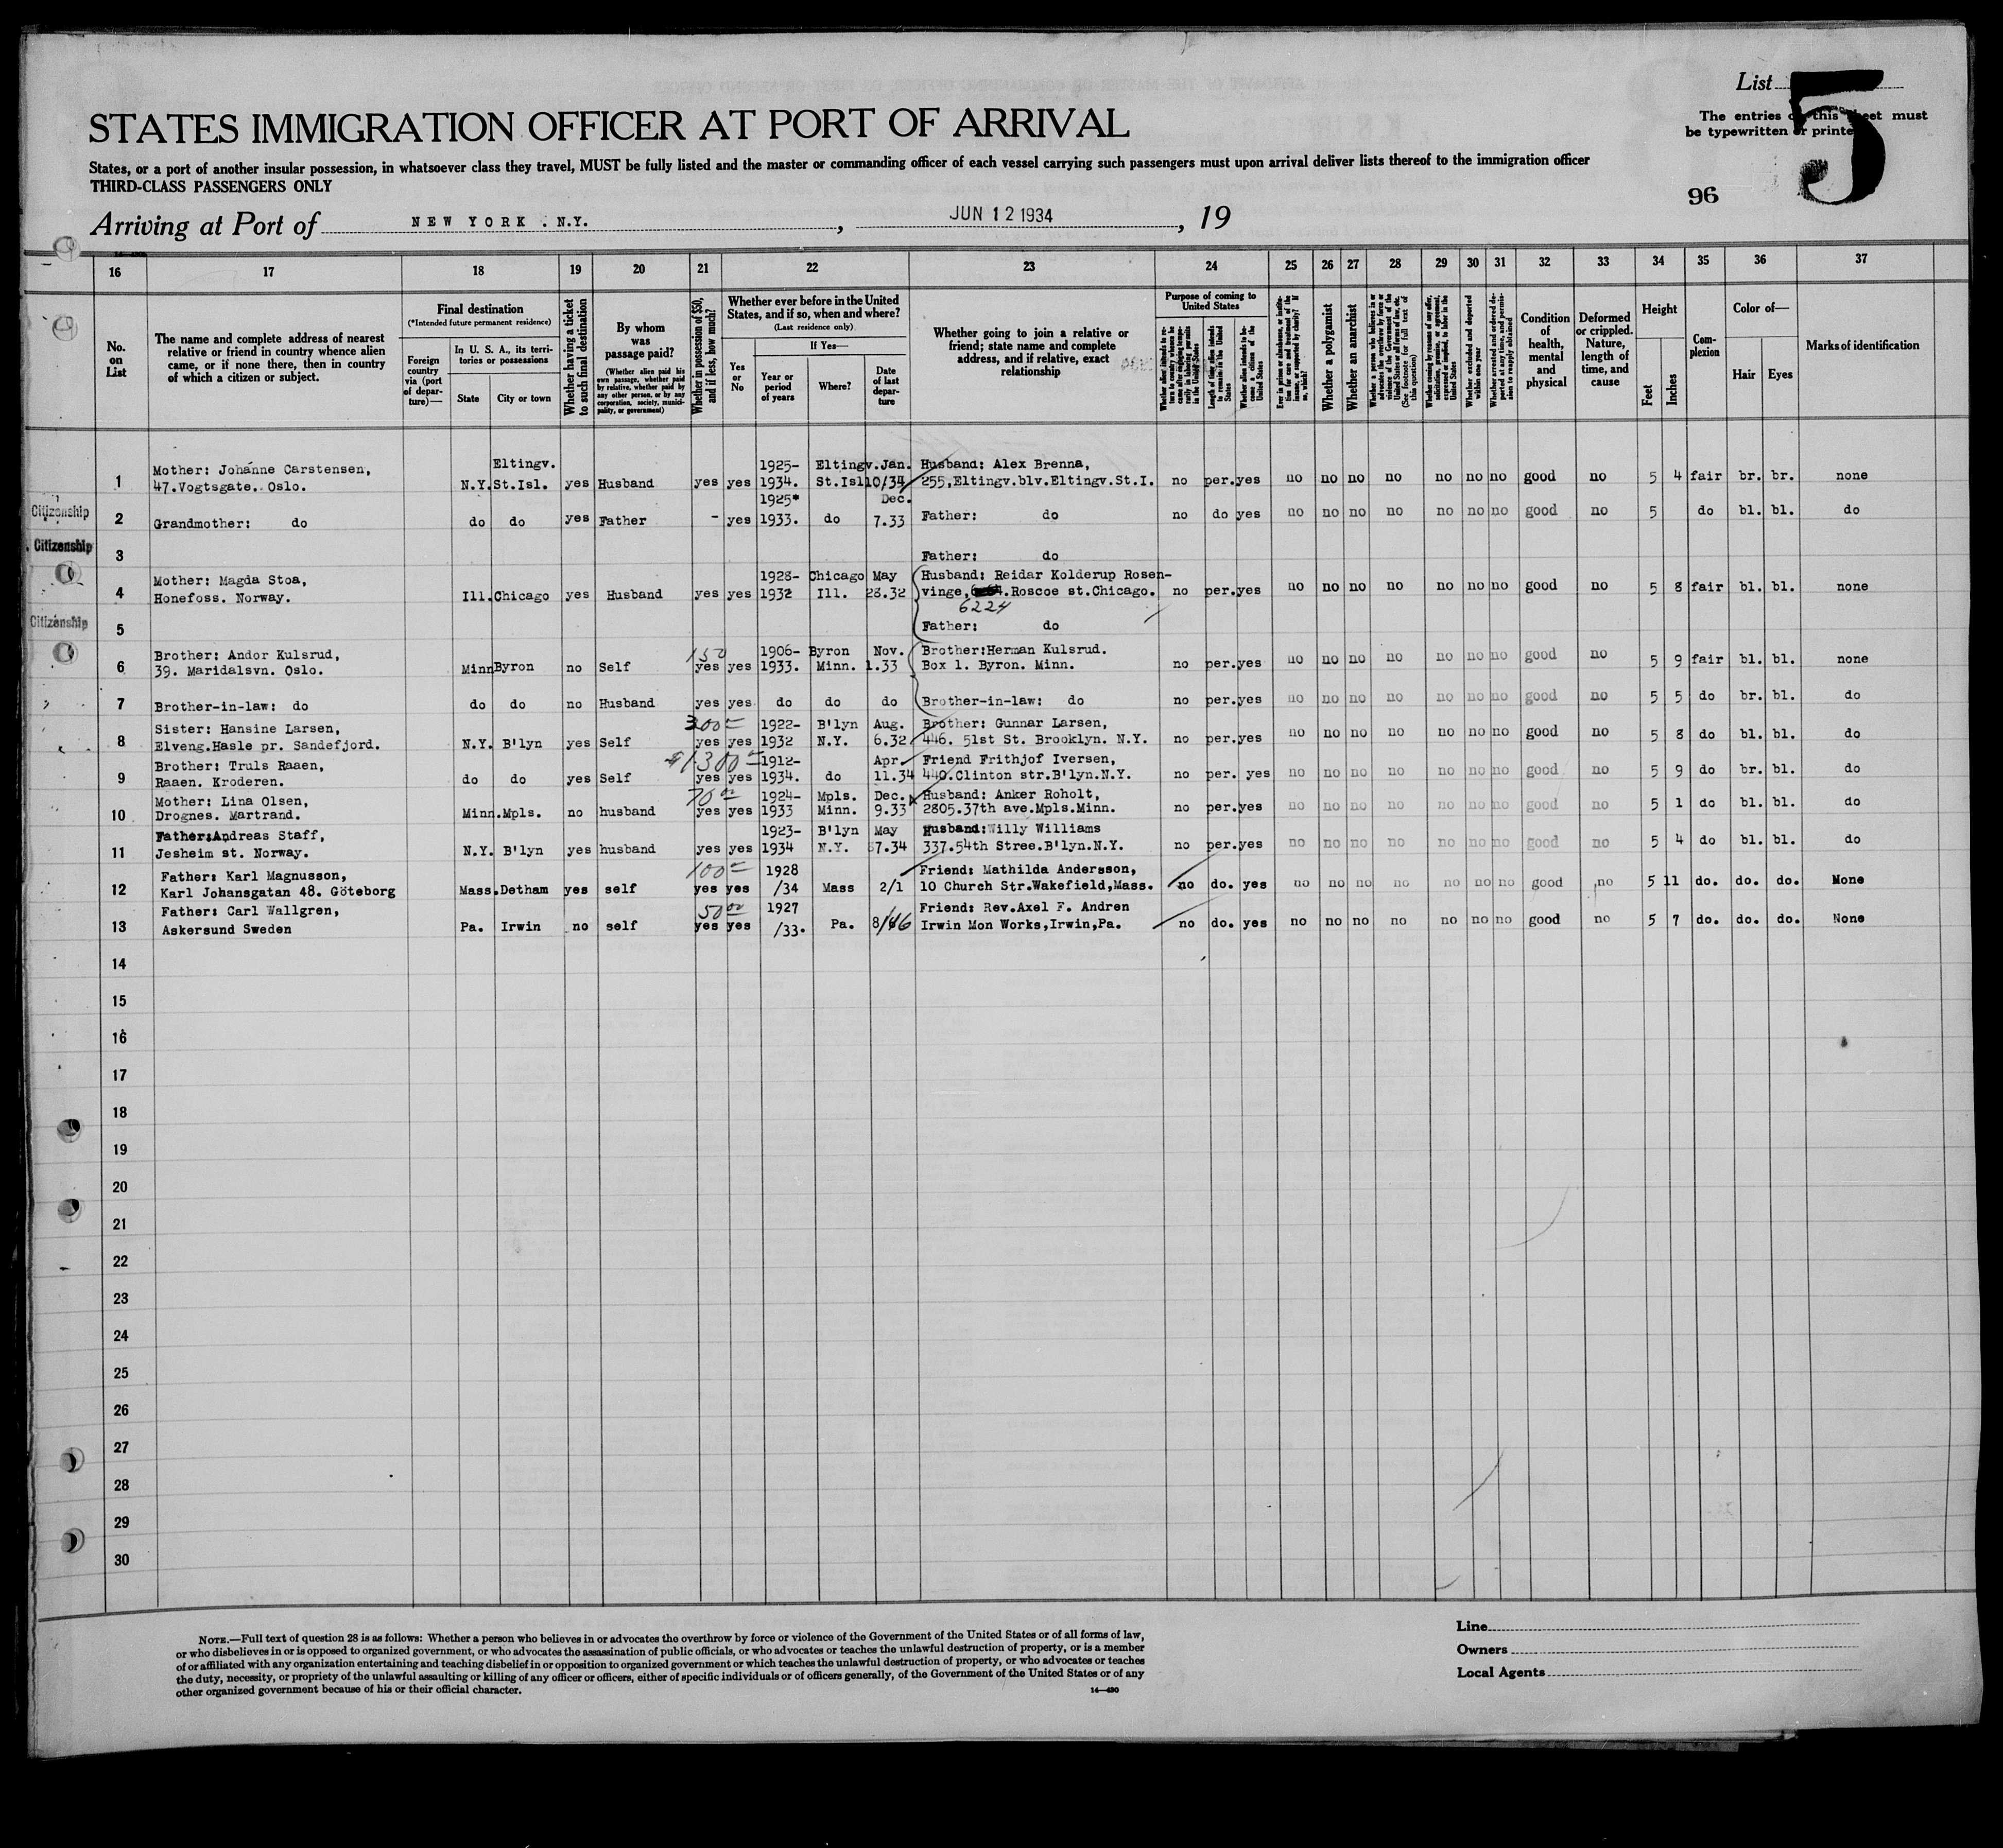 List 5
STATES IMMIGRATION OFFICER AT PORT OF ARRIVAL
The entries on this sheet must
be typewritten or printed
States, or a port of another insular possession, in whatsoever class they travel, MUST be fully listed and the master or commanding officer of each vessel carrying such passengers must upon arrival deliver lists thereof to the immigration officer
THIRD-CLASS PASSENGERS ONLY
96
Arriving at Port of NEW YORK . N.Y. , JUN 12 1934 , 19
16 17 18 19 20 21 22 23 24 25 26 27 28 29 30 31 32 33 34 35 36 37
No. on List
The name and complete address of nearest
relative or friend in country whence alien
came, or if none there, then in country
of which a citizen or subject.
Final destination
(*Intended future permanent residence)
Foreign country via (port of departure)—
In U. S. A., its territories or possessions
State
City or town
Whether having a ticket to such final destination
By whom was passage paid?
(Whether alien paid his own passage, whether paid by relative, whether paid by any other person, or by any corporation, society, municipality, or government)
Whether in possession of $50, and if less, how much?
Whether ever before in the United
States, and if so, when and where?
(Last residence only)
Yes or No
If Yes—
Year or period of years
Where?
Date of last departure
Whether going to join a relative or
friend; state name and complete
address, and if relative, exact
relationship
Purpose of coming to United States
Whether alien intends to become a citizen of the United States
Whether a polygamist
Whether an anarchist
Condition of health, mental and physical
Deformed or crippled. Nature, length of time, and cause
Height
Feet
Inches
Complexion
Color of—
Hair
Eyes
Marks of identification
1 Mother: Johanne Carstensen, 47.Vogtsgate. Oslo. N.Y. Eltingv. St.Isl. yes Husband yes yes 1925-1934. Eltingv. St.Isl Jan. 10/34 Husband: Alex Brenna, 255,Eltingv.blv.Eltingv.St.I. no per. yes no no no no no no no good no 5 4 fair br. br. none
Citizenship
2 Grandmother: do do do yes Father - yes 1925* 1933. do Dec. 7.33 Father: do no do yes no no no no no no no good no 5 do bl. bl. do
Citizenship
3 Father: do
4 Mother: Magda Stoa, Honefoss. Norway. Ill. Chicago yes Husband yes yes 1928-1932 Chicago Ill. May 28.32 Husband: Reidar Kolderup Rosen-vinge, .Roscoe st.Chicago. 6224 no per. yes no no no no no no no good no 5 8 fair bl. bl. none
Citizenship
5 Father: do
6 Brother: Andor Kulsrud, 39. Maridalsvn. Oslo. Minn Byron no Self 150 yes yes 1906-1933. Byron Minn. Nov. 1.33 Brother:Herman Kulsrud. Box 1. Byron. Minn. no per. yes no no no no no no no good no 5 9 fair bl. bl. none
7 Brother-in-law: do do do no Husband yes yes do do do Brother-in-law: do no per. yes no no no no no no no good no 5 5 do br. bl. do
8 Sister: Hansine Larsen, Elveng.Hasle pr. Sandefjord. N.Y. B'lyn yes Self 300 yes yes 1922-1932 B'lyn N.Y. Aug. 6.32 Brother: Gunnar Larsen, 446. 51st St. Brooklyn. N.Y. no per. yes no no no no no no no good no 5 8 do bl. bl. do
9 Brother: Truls Raaen, Raaen. Kroderen. do do yes Self $1300 yes yes 1912-1934. do Apr. 11.34 Friend Frithjof Iversen, 440.Clinton str.B'lyn.N.Y. no per. yes no no no no no no no good no 5 9 do br. bl. do
10 Mother: Lina Olsen, Drognes. Martrand. Minn. Mpls. no husband 70 00 yes yes 1924-1933 Mpls. Minn. Dec. 9.33 Husband: Anker Roholt, 2805.37th ave.Mpls.Minn. no per. yes no no no no no no no good no 5 1 do bl. bl. do
11 Father:Andreas Staff, Jesheim st. Norway. N.Y. B'lyn yes husband yes yes 1923-1934 B'lyn N.Y. May 7.34 Husband:Willy Williams 337.54th Stree.B'lyn.N.Y. no per. yes no no no no no no no good no 5 4 do bl. bl. do
12 Father: Karl Magnusson, Karl Johansgatan 48. Göteborg Mass. Detham yes self 100 yes yes 1928 /34 Mass 2/1 Friend: Mathilda Andersson, 10 Church Str.Wakefield,Mass. no do. yes no no no no no no no good no 5 11 do. do. do. None
13 Father: Carl Wallgren, Askersund Sweden Pa. Irwin no self 50 00 yes yes 1927 /33. Pa. Friend: Rev.Axel F. Andren Irwin Mon Works,Irwin,Pa. no do. yes no no no no no no no good no 5 7 do. do. do. None
14
15
16
17
18
19
20
21
22
23
24
25
26
27
28
29
30
NOTE.—Full text of question 28 is as follows: Whether a person who believes in or advocates the overthrow by force or violence of the Government of the United States or of all forms of law,
or who disbelieves in or is opposed to organized government, or who advocates the assassination of public officials, or who advocates or teaches the unlawful destruction of property, or is a member
of or affiliated with any organization entertaining and teaching disbelief in or opposition to organized government or which teaches the unlawful destruction of property, or who advocates or teaches
the duty, necessity, or propriety of the unlawful assaulting or killing of any officer or officers, either of specific individuals or of officers generally, of the Government of the United States or of any
other organized government because of his or their official character.
14—430
Line
Owners
Local Agents